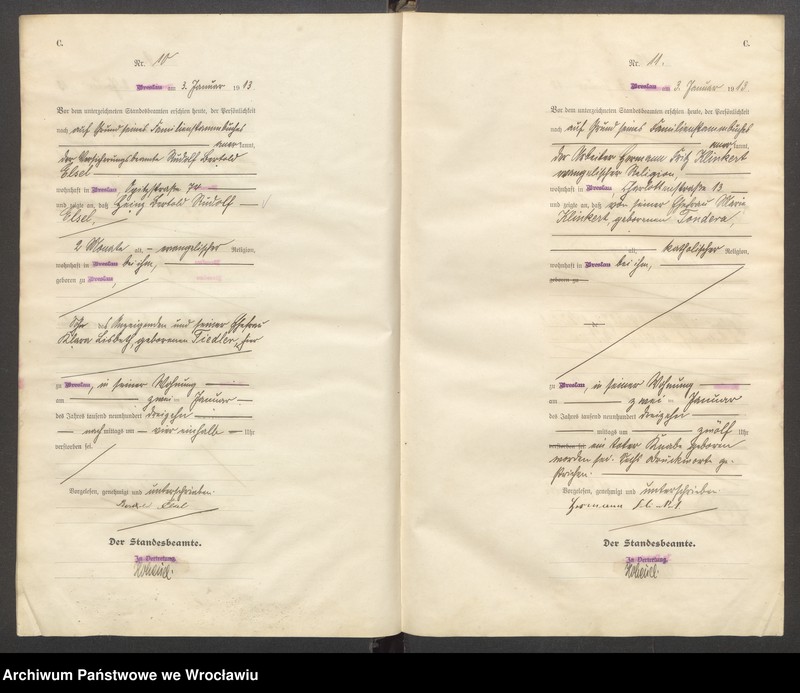 C.
Nr. 10
Breslau am 3. Januar 1913.
Vor dem unterzeichneten Standesbeamten erschien heute, der Persönlichkeit
nach auf Grund seines Familienstammbuches
aner kannt,
der Versicherungsbeamte Rudolf Bertold
Elsel
wohnhaft in Breslau,
und zeigte an, daß Bertold Rudolf
Elsel,
2 Monate alt, evangelischer Religion,
wohnhaft in Breslau bei ihm,
geboren zu Breslau,
Sohn des Anzeigenden und seiner Ehefrau
Klara Lisbeth, geborenen Fiedler, hier
zu Breslau, in seiner Wohnung
am zwei ten Januar
des Jahres tausend neunhundert dreizehn
nach mittags um vier einhalb Uhr
verstorben sei.
Vorgelesen, genehmigt und unterschrieben.
Elsel
Der Standesbeamte.
In Vertretung.
C.
Nr. 11.
Breslau am 3. Januar 1913.
Vor dem unterzeichneten Standesbeamten erschien heute, der Persönlichkeit
nach auf Grund seines Familienstammbuches
aner kannt,
der Arbeiter Hermann Fritz Klinkert
evangelischer Religion,
wohnhaft in Breslau, 13
und zeigte an, daß von seiner Ehefrau Maria
Klinkert, geborenen Tondera,
alt, katholischer Religion,
wohnhaft in Breslau bei ihm,
geboren zu
zu Breslau, in seiner Wohnung
am zwei ten Januar
des Jahres tausend neunhundert dreizehn
mittags um zwölf Uhr
verstorben sei ein toter Knabe geboren
worden sei. Sechs Druckworte ge-
strichen.
Vorgelesen, genehmigt und unterschrieben
Hermann
Der Standesbeamte.
In Vertretung.
Archiwum Państwowe we Wrocławiu